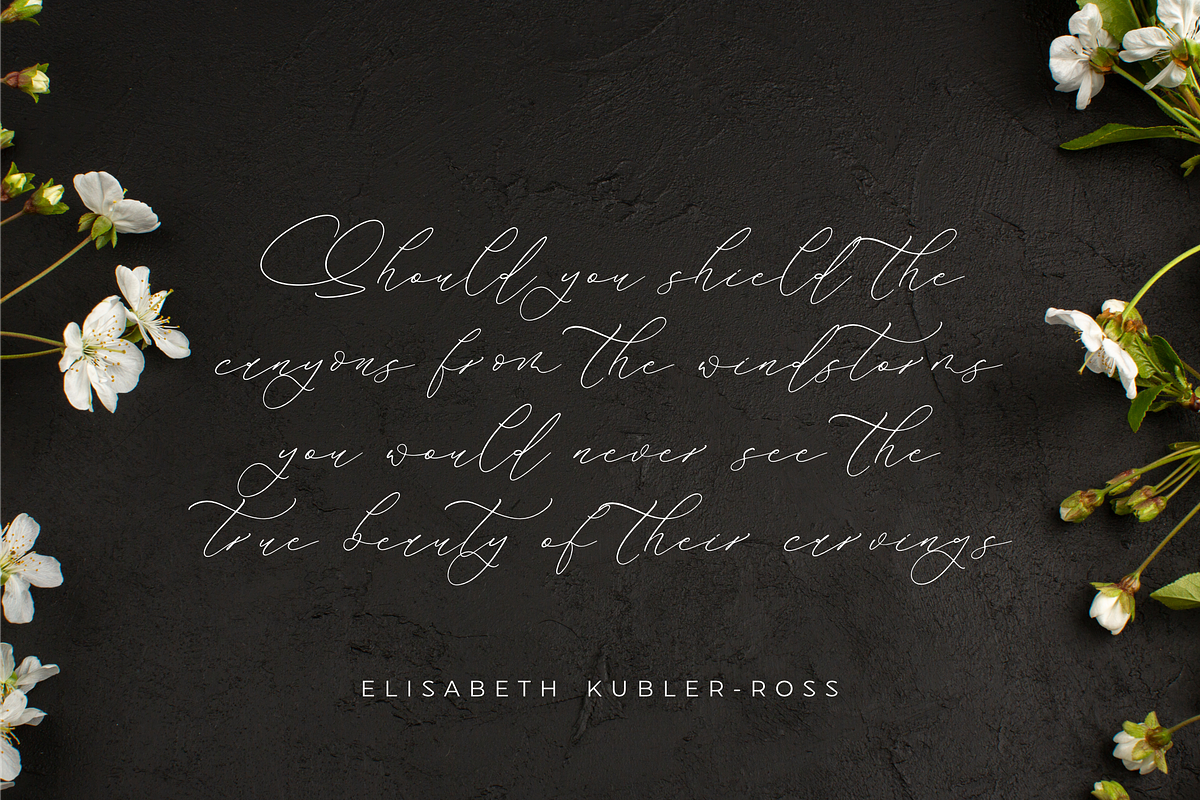 Should you shield the
canyons from the windstorms
you would never see the
true beauty of their carvings
ELISABETH KUBLER-ROSS